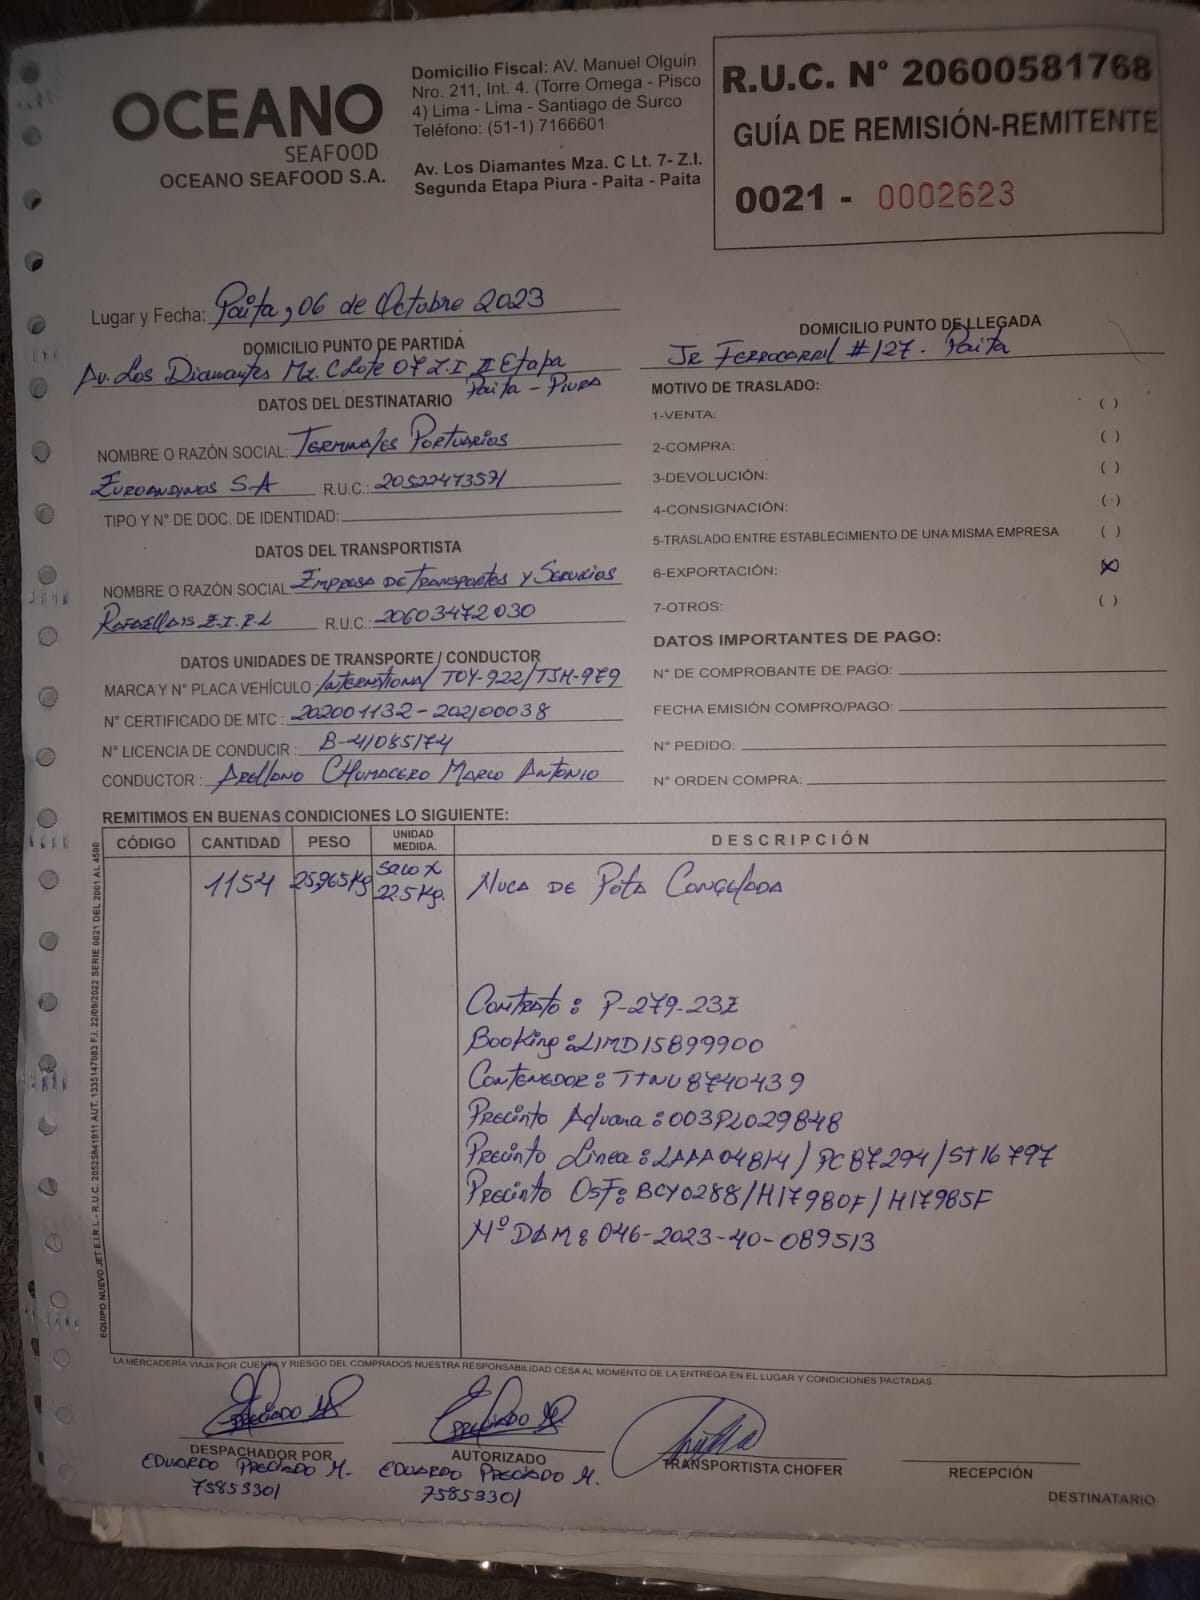 OCEANO
SEAFOOD
OCEANO SEAFOOD S.A.
Domicilio Fiscal: AV. Manuel Olguin
Nro. 211, Int. 4. (Torre Omega - Pisco
4) Lima - Lima - Santiago de Surco
Teléfono: (51-1) 7166601
Av. Los Diamantes Mza. C Lt. 7- Z.I.
Segunda Etapa Piura - Paita - Paita
R.U.C. N° 20600581768
GUÍA DE REMISIÓN-REMITENTE
0021 - 0002623
Lugar y Fecha: Paita, 06 de Octubre 2023
DOMICILIO PUNTO DE PARTIDA
Av. Los Diamantes Mz. C Lote 07 Z.I II Etapa
Paita - Piura
DOMICILIO PUNTO DE LLEGADA
Jr Ferrocarril #127. Paita
DATOS DEL DESTINATARIO
NOMBRE O RAZÓN SOCIAL: Terminales Portuarios
Euroandinos S.A R.U.C.: 20522473571
TIPO Y N° DE DOC. DE IDENTIDAD:
DATOS DEL TRANSPORTISTA
NOMBRE O RAZÓN SOCIAL: Empresa de Transportes y Servicios
Rafaellais E.I.R.L R.U.C.: 20603472030
DATOS UNIDADES DE TRANSPORTE / CONDUCTOR
MARCA Y N° PLACA VEHÍCULO: International TOY-922/TJH-979
N° CERTIFICADO DE MTC: 202001132-202100038
N° LICENCIA DE CONDUCIR: B-41085174
CONDUCTOR: Arellano Chumacero Marco Antonio
MOTIVO DE TRASLADO:
1-VENTA: ( )
2-COMPRA: ( )
3-DEVOLUCIÓN: ( )
4-CONSIGNACIÓN: ( )
5-TRASLADO ENTRE ESTABLECIMIENTO DE UNA MISMA EMPRESA ( )
6-EXPORTACIÓN: (X)
7-OTROS: ( )
DATOS IMPORTANTES DE PAGO:
N° DE COMPROBANTE DE PAGO:
FECHA EMISIÓN COMPRO/PAGO:
N° PEDIDO:
N° ORDEN COMPRA:
REMITIMOS EN BUENAS CONDICIONES LO SIGUIENTE:
CÓDIGO CANTIDAD PESO UNIDAD MEDIDA. DESCRIPCIÓN
1154 25,965 Kg Saco x 22.5 Kg. Nuca de Pota Congelada
Contrato: P-279-23E
Booking: LIMD15899900
Contenedor: TTNU 8740439
Precinto Aduana: 003PL029848
Precinto Linea: LAAA04814/PC87294/ST16797
Precinto OSF: BCY0288/H17980F/H17985F
N° DAM: 046-2023-40-089513
EQUIPO NUEVO JET E.I.R.L - R.U.C. 20525841911 AUT. 1335147083 F.I. 22/09/2022 SERIE 0021 DEL 2001 AL 4500
LA MERCADERÍA VIAJA POR CUENTA Y RIESGO DEL COMPRADOS NUESTRA RESPONSABILIDAD CESA AL MOMENTO DE LA ENTREGA EN EL LUGAR Y CONDICIONES PACTADAS.
DESPACHADOR POR
Eduardo Preciado M.
75853301
AUTORIZADO
Eduardo Preciado M.
75853301
TRANSPORTISTA CHOFER
RECEPCIÓN
DESTINATARIO